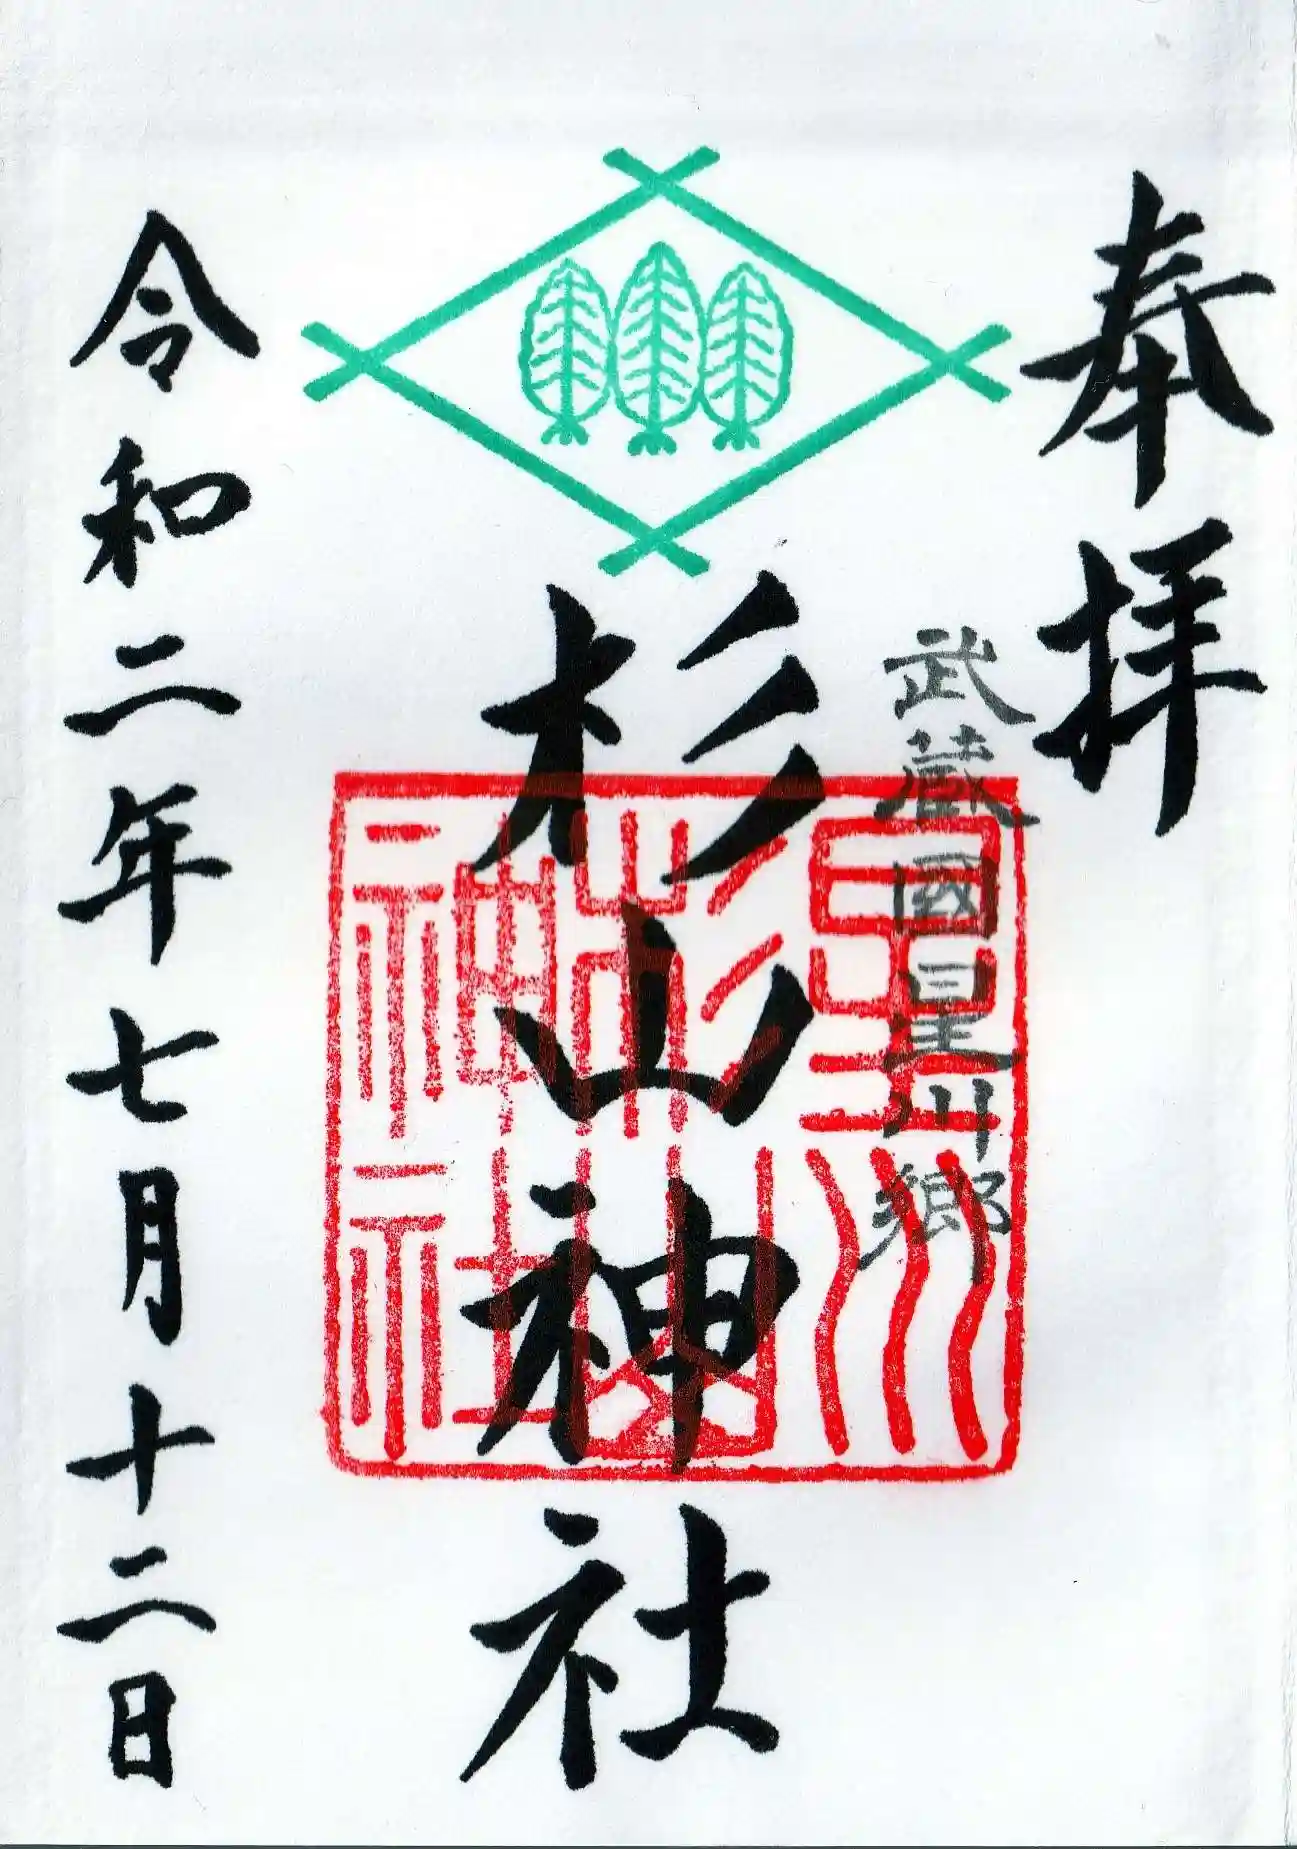 奉拝
武蔵國星川郷
杉山神社
星川
杉山
神社
令和二年七月十二日